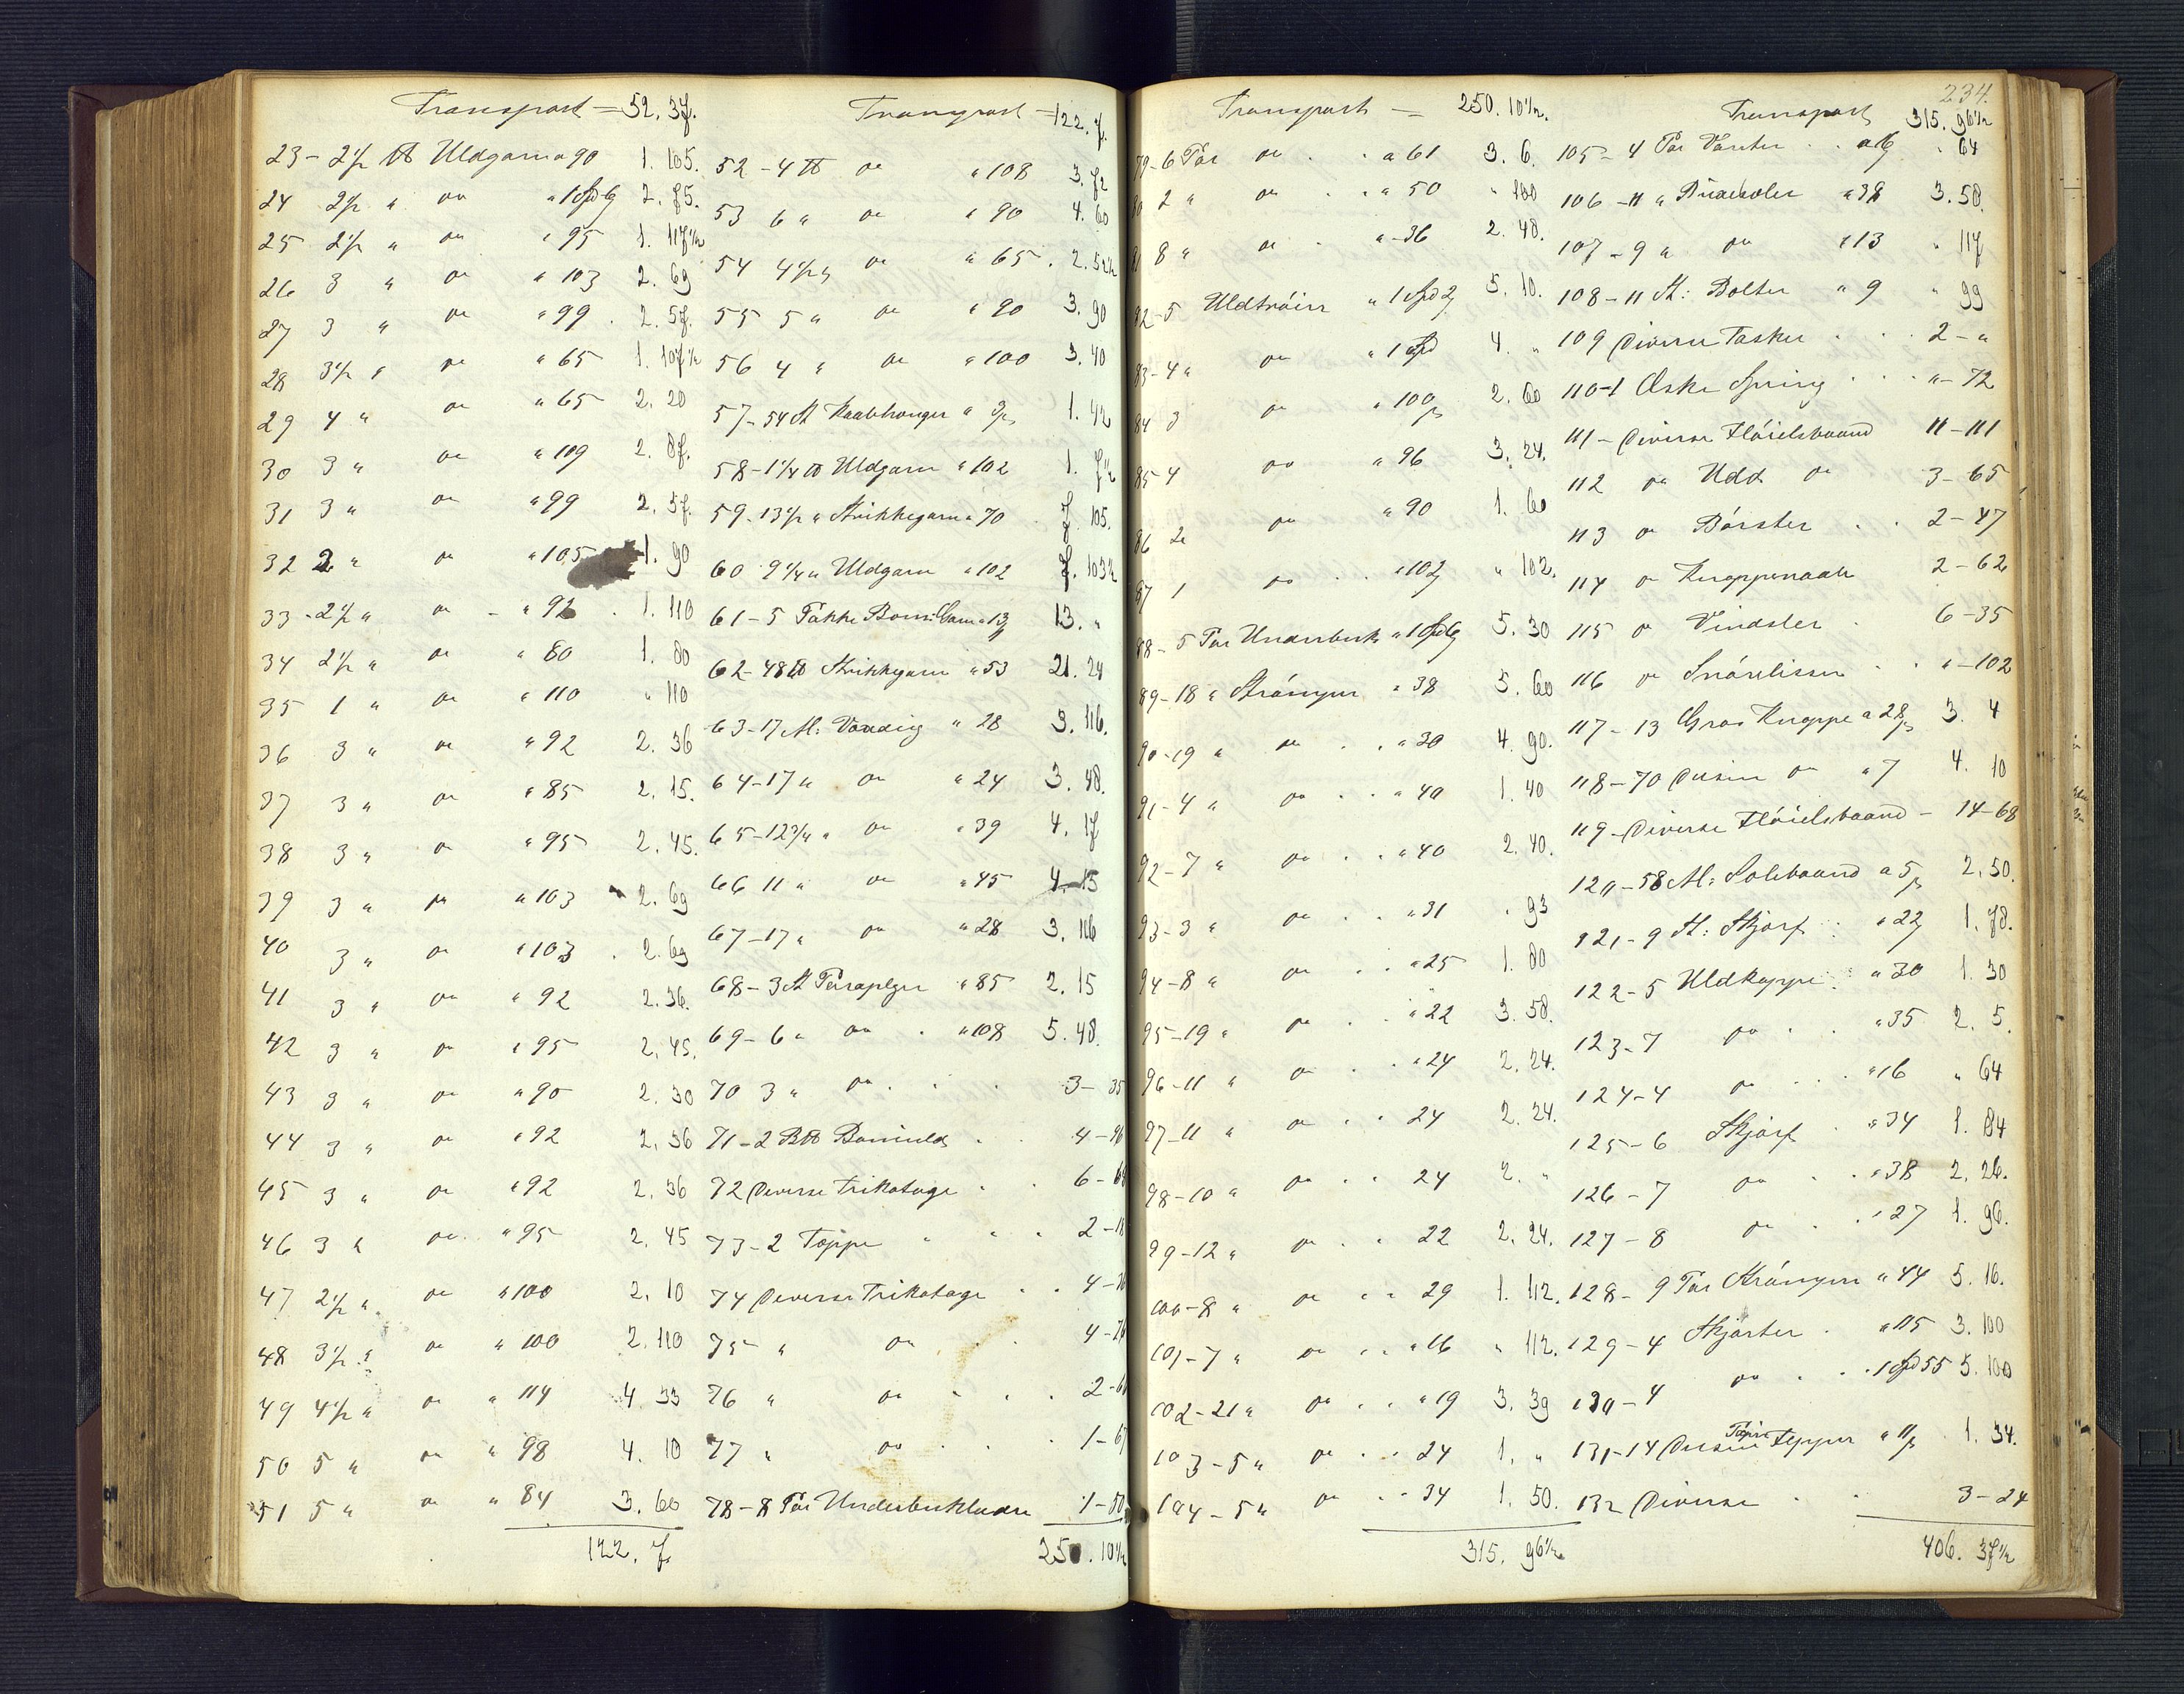 Transport = 52. 37.
23 - 2½ ℔ Uldgarn a 90 1. 105.
24 2½ " do " 1 Spd 6 2. 75.
25 2½ " do " 95 1. 117½
26 3 " do " 103 2. 69
27 3 " do " 99 . 2. 57.
28 3½ " do " 65 1. 107½
29 4 " do " 65 2. 20
30 3 " do " 109 2. 87.
31 3 " do " 99 2. 57.
32 2 " do " 105 1. 90
33 - 2½ " do - " 92 . 1. 110
34 2½ " do " 80 1. 80
35 1 " do " 110 " 110
36 3 " do " 92 2. 36
37 3 " do " 85 2. 15.
38 3 " do " 95 2. 45.
39 3 " do " 103 2. 69
40 3 " do " 103 . 2. 69
41 3 " do " 92 2. 36.
42 3 " do " 95 2. 45.
43 3 " do " 90 2. 30
44 3 " do " 92 2. 36
45 3 " do " 92 2. 36
46 3 " do " 95 2. 45
47 2½ " do " 100 2. 10
48 3½ " do " 100 2. 110
49 4½ " do " 114 4. 33
50 5 " do " 98 4. 10
51 5 " do " 84 3. 60
122. 7.
Transport = 122. 7.
52 - 4 ℔ do " 108 3. 72
53 6 " do " 90 4. 60
54 4½ " do " 65 . 2. 52½
55 5 " do " 90 3. 90
56 4 " do " 100 3. 40
57 - 54 St 1. 42
58 - 1¼ ℔ Uldgarn " 102 1. 7½
59 - 13½ " Strikkegarn " 70 7. 105.
60 9¼ " Uldgarn " 102 7. 103½
61 - 5 Pakke Bom: Garn " 13. "
62 - 48 ℔ Strikkegarn " 53 21. 24
63 - 17 Al: Vadding " 28 3. 116.
64 - 17 " do " 24 3. 48.
65 - 12¾ " do " 39 4. 17
66 11 " do " 45 4. 15
67 - 17 " do " 28 3. 116
68 - 3 St Paraplyer " 85 2. 15
69 - 6 " do . " 108 5. 48.
70 3 " do . . . 3 - 35
71 - 2 B℔ Bomuld . . 4 - 96
72 Diverse Trikotage . . 6 - 68
73 - 2 Tæppe " . . 2 - 18
74 Diverse Trikotage . . 4 - 76
75 - " do . 4 - 76
76 " do . . . 2 - 6
77 " do . . . 1 - 67
78 - 8 Par Underbenklæder 1 - 80
250. 10½
234.
Transport = 250. 10½.
79 - 6 Par do . . a 61 3. 6.
80 2 " do . . " 50 " 100
81 8 " do . " 36 2. 48.
82 - 5 Uldtröier " 1 Spd 2 5. 10.
83 - 4 " do " 1 Spd 4. "
84 3 do " 100 2. 60
85 4 do " 96 3. 24.
86 2 do " 90 1. 60
87 1 do . . " 102 " 102.
88 - 5 Par Underbenk " 1 Spd 6 5. 30
89 - 18 " Strömper " 38 5. 60
90 - 19 " do . . " 30 4. 90.
91 - 4 " do . . " 40 1. 40
92 - 7 " do . . " 40 2. 40.
93 - 3 " do . . " 31 . 93
94 - 8 " do . . " 25 1. 80
95 - 19 " do . . " 22 3. 58.
96 - 11 " do . . " 24 2. 24.
97 - 11 " do . . 24 2. 24.
98 - 10 " do . . 24 2. "
99 - 12 " do . " 22 2. 24.
100 - 8 " do . . 29 1. 112.
101 - 7 " do . . " 16 " 112.
102 - 21 " do . . " 19 3. 39
103 - 5 " do . . 24 1. "
104 - 5 " do . . 34 1. 50.
315. 96½
Transport 315. 96½
105 - 4 Par Vanter . . a 16 . 64
106 - 11 " " 38 3. 58.
107 - 9 " do " 13 " 117
108 - 11 St: Bolter " 9 " 99
109 Diverse Tasker . . . 2 - "
110 - 1 Æske Spring . . . " - 72
111 - Diverse Flöielsbaand 11 - 111
112 do Uld do 3 - 65
113 do Börster . . 2 - 47
114 do Knappenaale 2 - 62
115 do Vindsler . 6 - 35
116 do Snörelisser . . " - 102
117 - 13 Gros Knappe a 28 3. 4
118 - 70 Dusin do " 7 4. 10
119 - Diverse Flöielsbaand - 14 - 68
120 - 58 Al: Solebaand a 5 2. 50.
121 - 9 St: Skjærf . . " 22 1. 78.
122 - 5 Uldkappe . . " 30 1. 30
123 - 7 do . . " 35 2. 5.
124 - 4 do . . . " 16 " 64
125 - 6 Skjærf . " 34 1. 84
126 - 7 do . . " 38 2. 26.
127 - 8 do . . " 27 1. 96.
128 - 9 Par Strömper " 44 5. 16.
129 - 4 Skjorter . " 115 3. 100
130 - 4 do . . . 1 Spd 55 5. 100
131 - 14 Dusin Papir Knapper " 11 . 1. 34.
132 Diverse . . 3 - 24
406. 37½